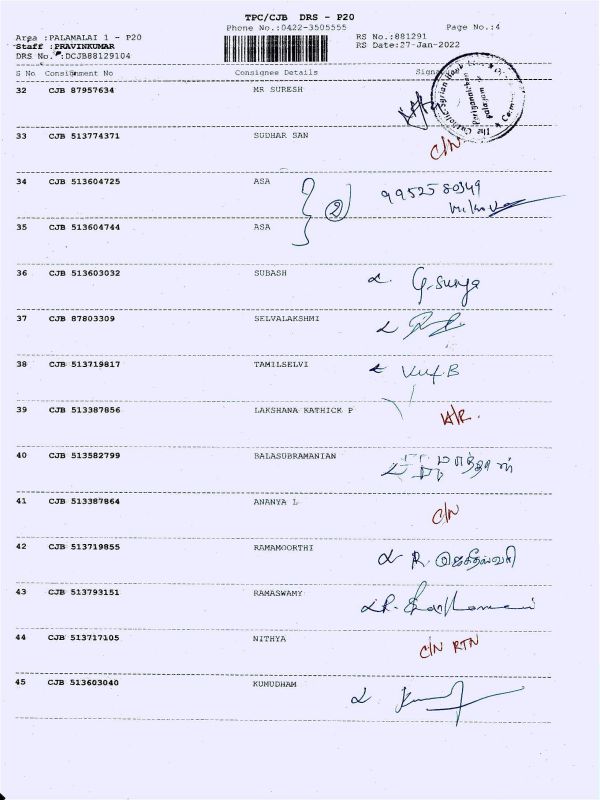 TPC/CJB DRS - P20
Phone No.:0422-3505555 Page No.:4
Area :PALAMALAI 1 - P20 RS No.:881291
Staff :PRAVINKUMAR RS Date:27-Jan-2022
DRS No. :DCJB88129104
S No Consignment No Consignee Details
32 CJB 87957634 MR SURESH
33 CJB 513774371 SUDHAR SAN C/N
34 CJB 513604725 ASA 2 9952580349
35 CJB 513604744 ASA
36 CJB 513603032 SUBASH G. Surya
37 CJB 87803309 SELVALAKSHMI
38 CJB 513719817 TAMILSELVI
39 CJB 513387856 LAKSHANA KATHICK P A/R.
40 CJB 513582799 BALASUBRAMANIAN
41 CJB 513387864 ANANYA L C/N
42 CJB 513719855 RAMAMOORTHI R.
43 CJB 513793151 RAMASWAMY
44 CJB 513717105 NITHYA C/N RTN
45 CJB 513603040 KUMUDHAM